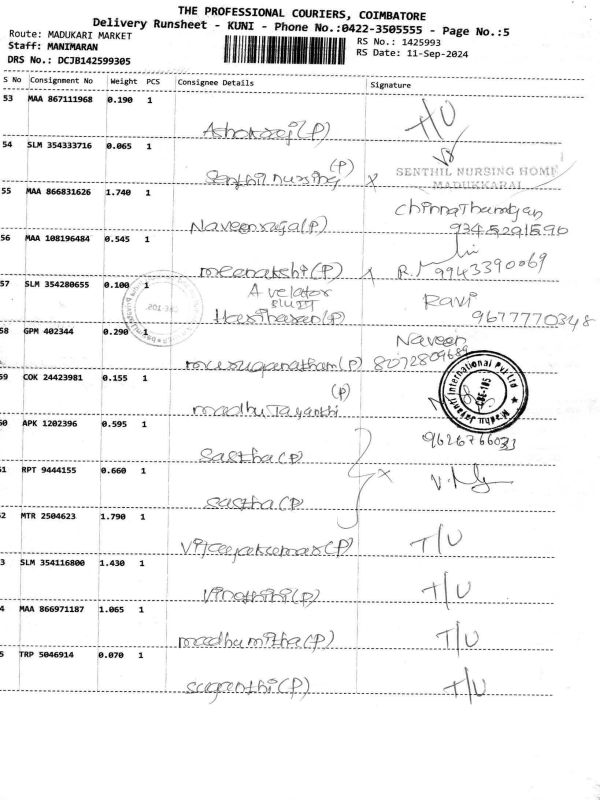 THE PROFESSIONAL COURIERS, COIMBATORE
Delivery Runsheet - KUNI - Phone No.:0422-3505555 - Page No.:5
Route: MADUKARI MARKET
Staff: MANIMARAN
DRS No.: DCJB142599305
RS No.: 1425993
RS Date: 11-Sep-2024
S No Consignment No Weight PCS Consignee Details Signature
53 MAA 867111968 0.190 1
Ashokraj (P) T/U
54 SLM 354333716 0.065 1
Senthil nursing (P) x SENTHIL NURSING HOME
MADUKKARAI
55 MAA 866831626 1.740 1
Naveenraja (P) Chinnathambyan
9345291590
56 MAA 108196484 0.545 1
meenakshi (P) 9943390069
57 SLM 354280655 0.100 1
Hariharan (P) Ravi
9677770348
58 GPM 402344 0.290 1
muruganatham (P) Naveen
8072809689
59 COK 24423981 0.155 1
madhu Jayanthi (P)
Madhu Jayanti International Pvt Ltd
CBE-105
60 APK 1202396 0.595 1
Sastha (P)
61 RPT 9444155 0.660 1
sastha (P) x
2 MTR 2504623 1.790 1
Vijayakumar (P) T/U
3 SLM 354116800 1.430 1
T/U
4 MAA 866971187 1.065 1
madhumitha (P) T/U
5 TRP 5046914 0.070 1
suganthi (P) T/U